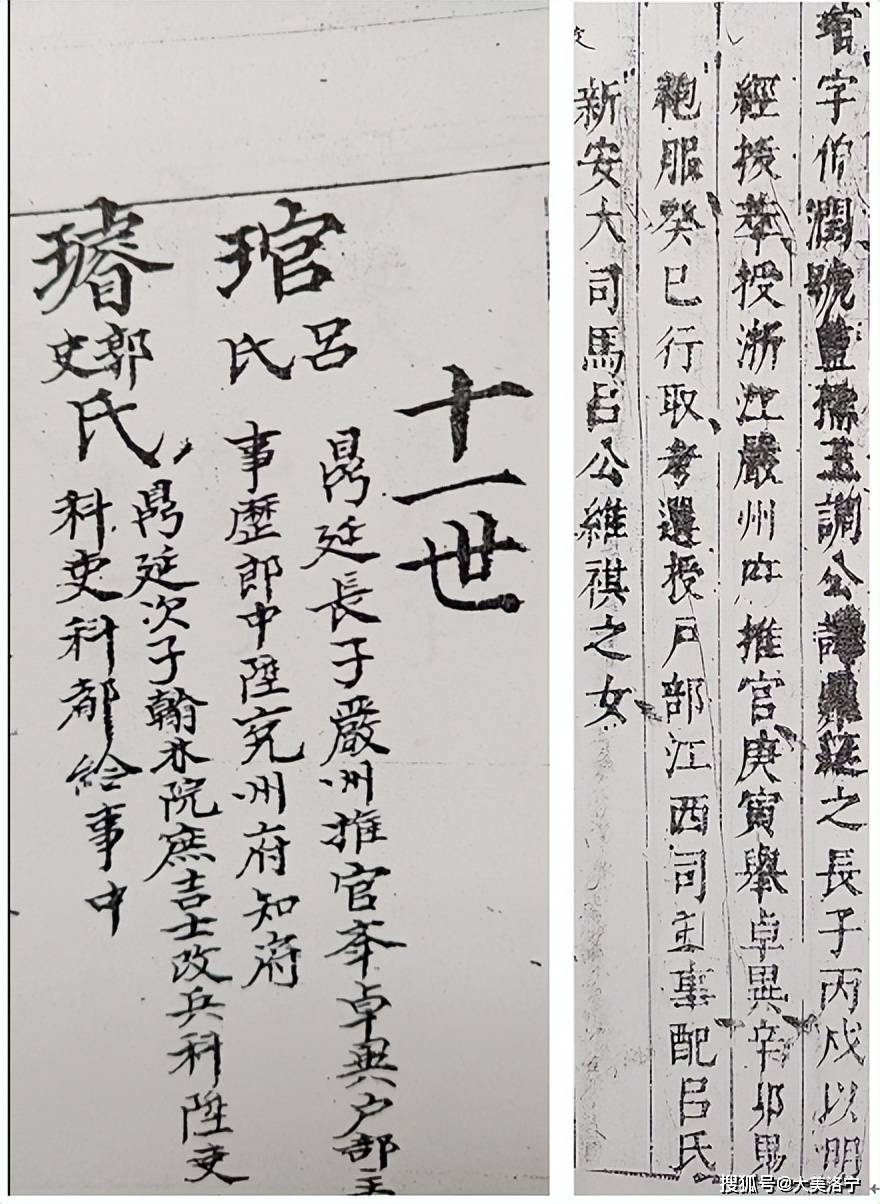 十一世
琯
呂氏
鼎延長子嚴州推官举卓異户部主
事歷郎中陞兖州府知府
璿
郭史氏
鼎延次子翰林院庶吉士改兵科陞吏
科吏科都給事中
琯字伯潤號藍孺玉調公諱鼎延之長子丙戌以明
經拔萃授浙江嚴州府推官庚寅舉卓異辛卯賜
袍服癸巳行取考選授戶部江西司主事配呂氏
新安大司馬呂公維祺之女
搜狐号@大美洛宁